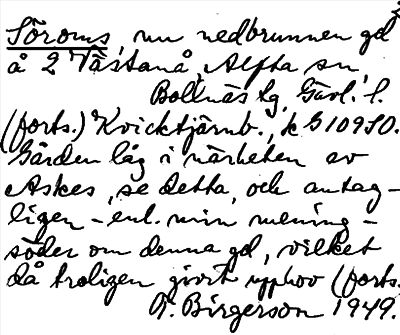 Söroms, nu nedbrunnen gd
å 2 Tåstanå, Alfta sn
Bollnäs tg, Gävl. l.
(forts.) Kvicktjärnb., k G 109 SO.
Gården låg i närheten av
Askes, se detta, och antag-
ligen – enl. min mening –
söder om denna gd, vilket
då troligen givit upphov (forts.
A. Birgerson 1949.